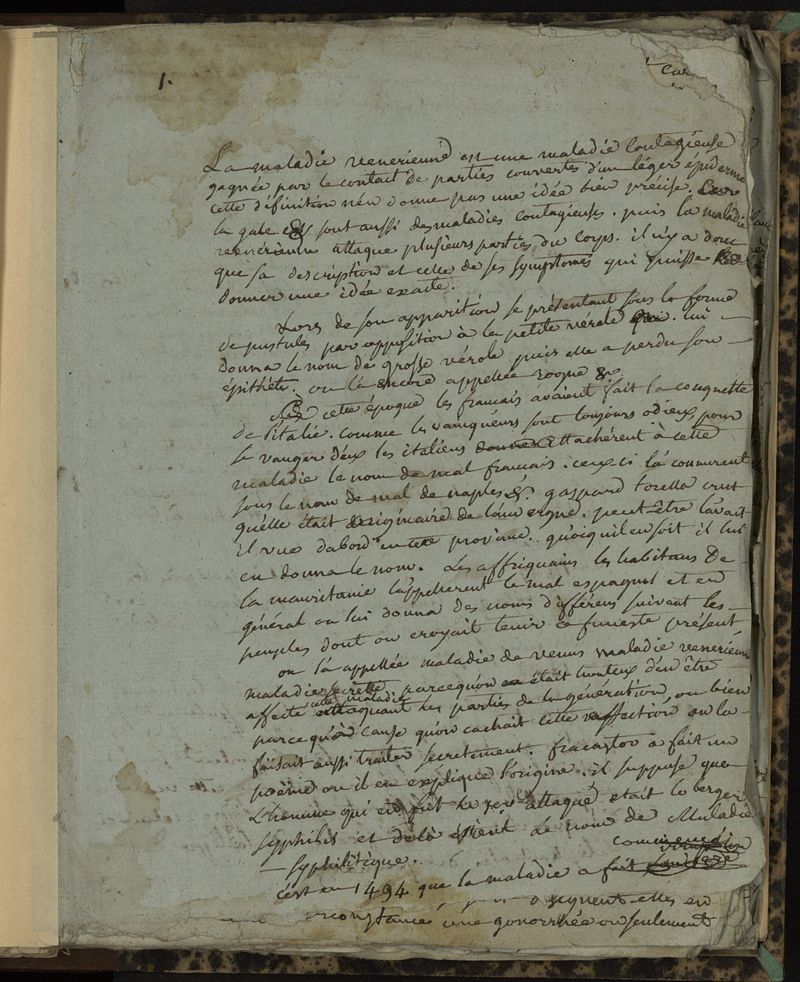 1.
La maladie venerienne est une maladie contagieuse
gagnée par le contact de parties couvertes d'un léger épiderme
cette définition n'en donne pas une idée bien précise. Car
la gale &c sont aussi des maladies contagieuses. puis la maladie
venerienne attaque plusieurs parties du corps. il n'y a donc
que sa description et celle de ses symptomes qui puisse
donner une idée exacte.
Lors de son apparition se présentant sous la forme
de pustules par opposition à la petite vérole on lui
donna le nom de grosse vérole puis elle a perdu son
épithète. on l'a encore appellée &c
cette époque les francais avaient fait la conquette
de l'italie. comme les vainqueurs sont toujours odieux, pour
se vanger d'eux les italiens attachèrent à cette
maladie le nom de mal francais. ceux ci la connurent
sous le nom de mal de naples &c. gaspard torella crut
qu'elle était originaire de l'auvergne. peut être l'avait
il vue d'abord en cette province. quoiqu'il en soit il lui
en donna le nom. Les affriquains les habitans de
la mauritanie l'appellerent le mal espagnol et en
général on lui donna des noms différens suivant les
peuples dont on croyait tenir ce funeste présent
on l'a appellée maladie de venus maladie venerienne
maladie secrette parcequ'on était honteux d'en être
affecté cette maladie attaquant les parties de la génération, ou bien
parce qu'à cause qu'on cachait cette affection on la
faisait aussi traiter secretement. fracastor a fait un
poëme ou il en explique l'origine. il suppose que
L'homme qui en fut le 1er attaqué etait le berger
syphilis et delà vient le nom de Maladie
syphilitique.
c'est en 1494 que la maladie a fait
une gonorrhée ou seulement